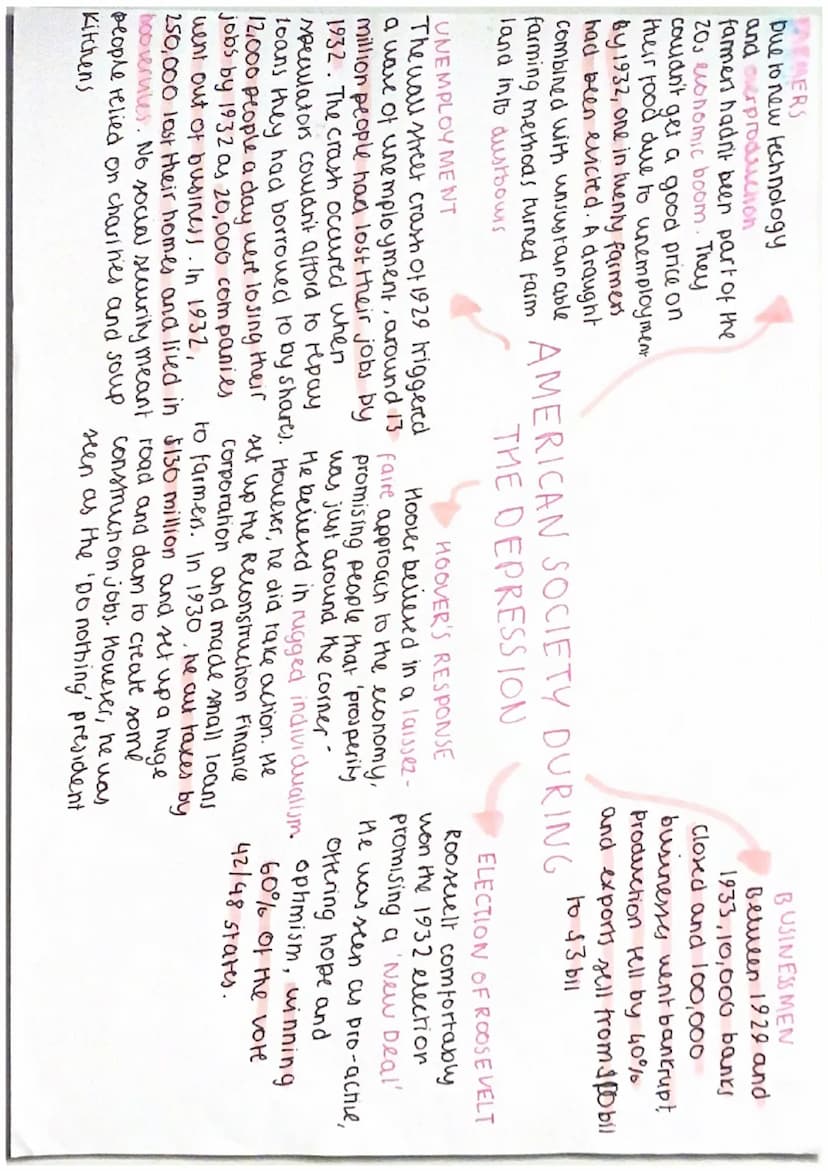 FARMERS
Due to new technology
and overproduction
farmers hadn't been part of the
20s economic boom. They
couldn't get a good price on
their food due to unemployment
By 1932, one in twenty farmers
had been evicted. A draught
combined with unsustainable
farming methods turned farm
land into dustbowls
AMERICAN SOCIETY DURING
THE DEPRESSION
BUSINESSMEN
Between 1929 and
1933, 10,000 banks
closed and 100,000
businesses went bankrupt,
production fell by 40%
and exports fell from $10bil
to $3bil
UNEMPLOYMENT
The wall street crash of 1929 triggered
a wave of unemployment, around 13
million people had lost their jobs by
1932. The crash occured when
speculators couldn't afford to repay
loans they had borrowed to by shares.
12,000 people a day were losing their
jobs by 1932 as 20,000 companies
went out of business. In 1932,
250,000 lost their homes and lived in
hoovervilles. No social security meant
people relied on charities and soup
kitchens
HOOVER'S RESPONSE
Hoover believed in a laissez-
faire approach to the economy,
promising people that 'prosperity
was just around the corner-
He believed in rugged individualism
However, he did take action. He
set up the Reconstruction Finance
corporation and made small loans
to farmers. In 1930, he cut taxes by
$130 million and set up a huge
road and dam to create some
construction jobs. However, he was
seen as the 'Do nothing' president
ELECTION OF ROOSEVELT
Roosevelt comfortably
won the 1932 election
promising a 'New Deal'
He was seen as pro-active,
offering hope and
optimism, winning
60% of the vote
42/48 states.